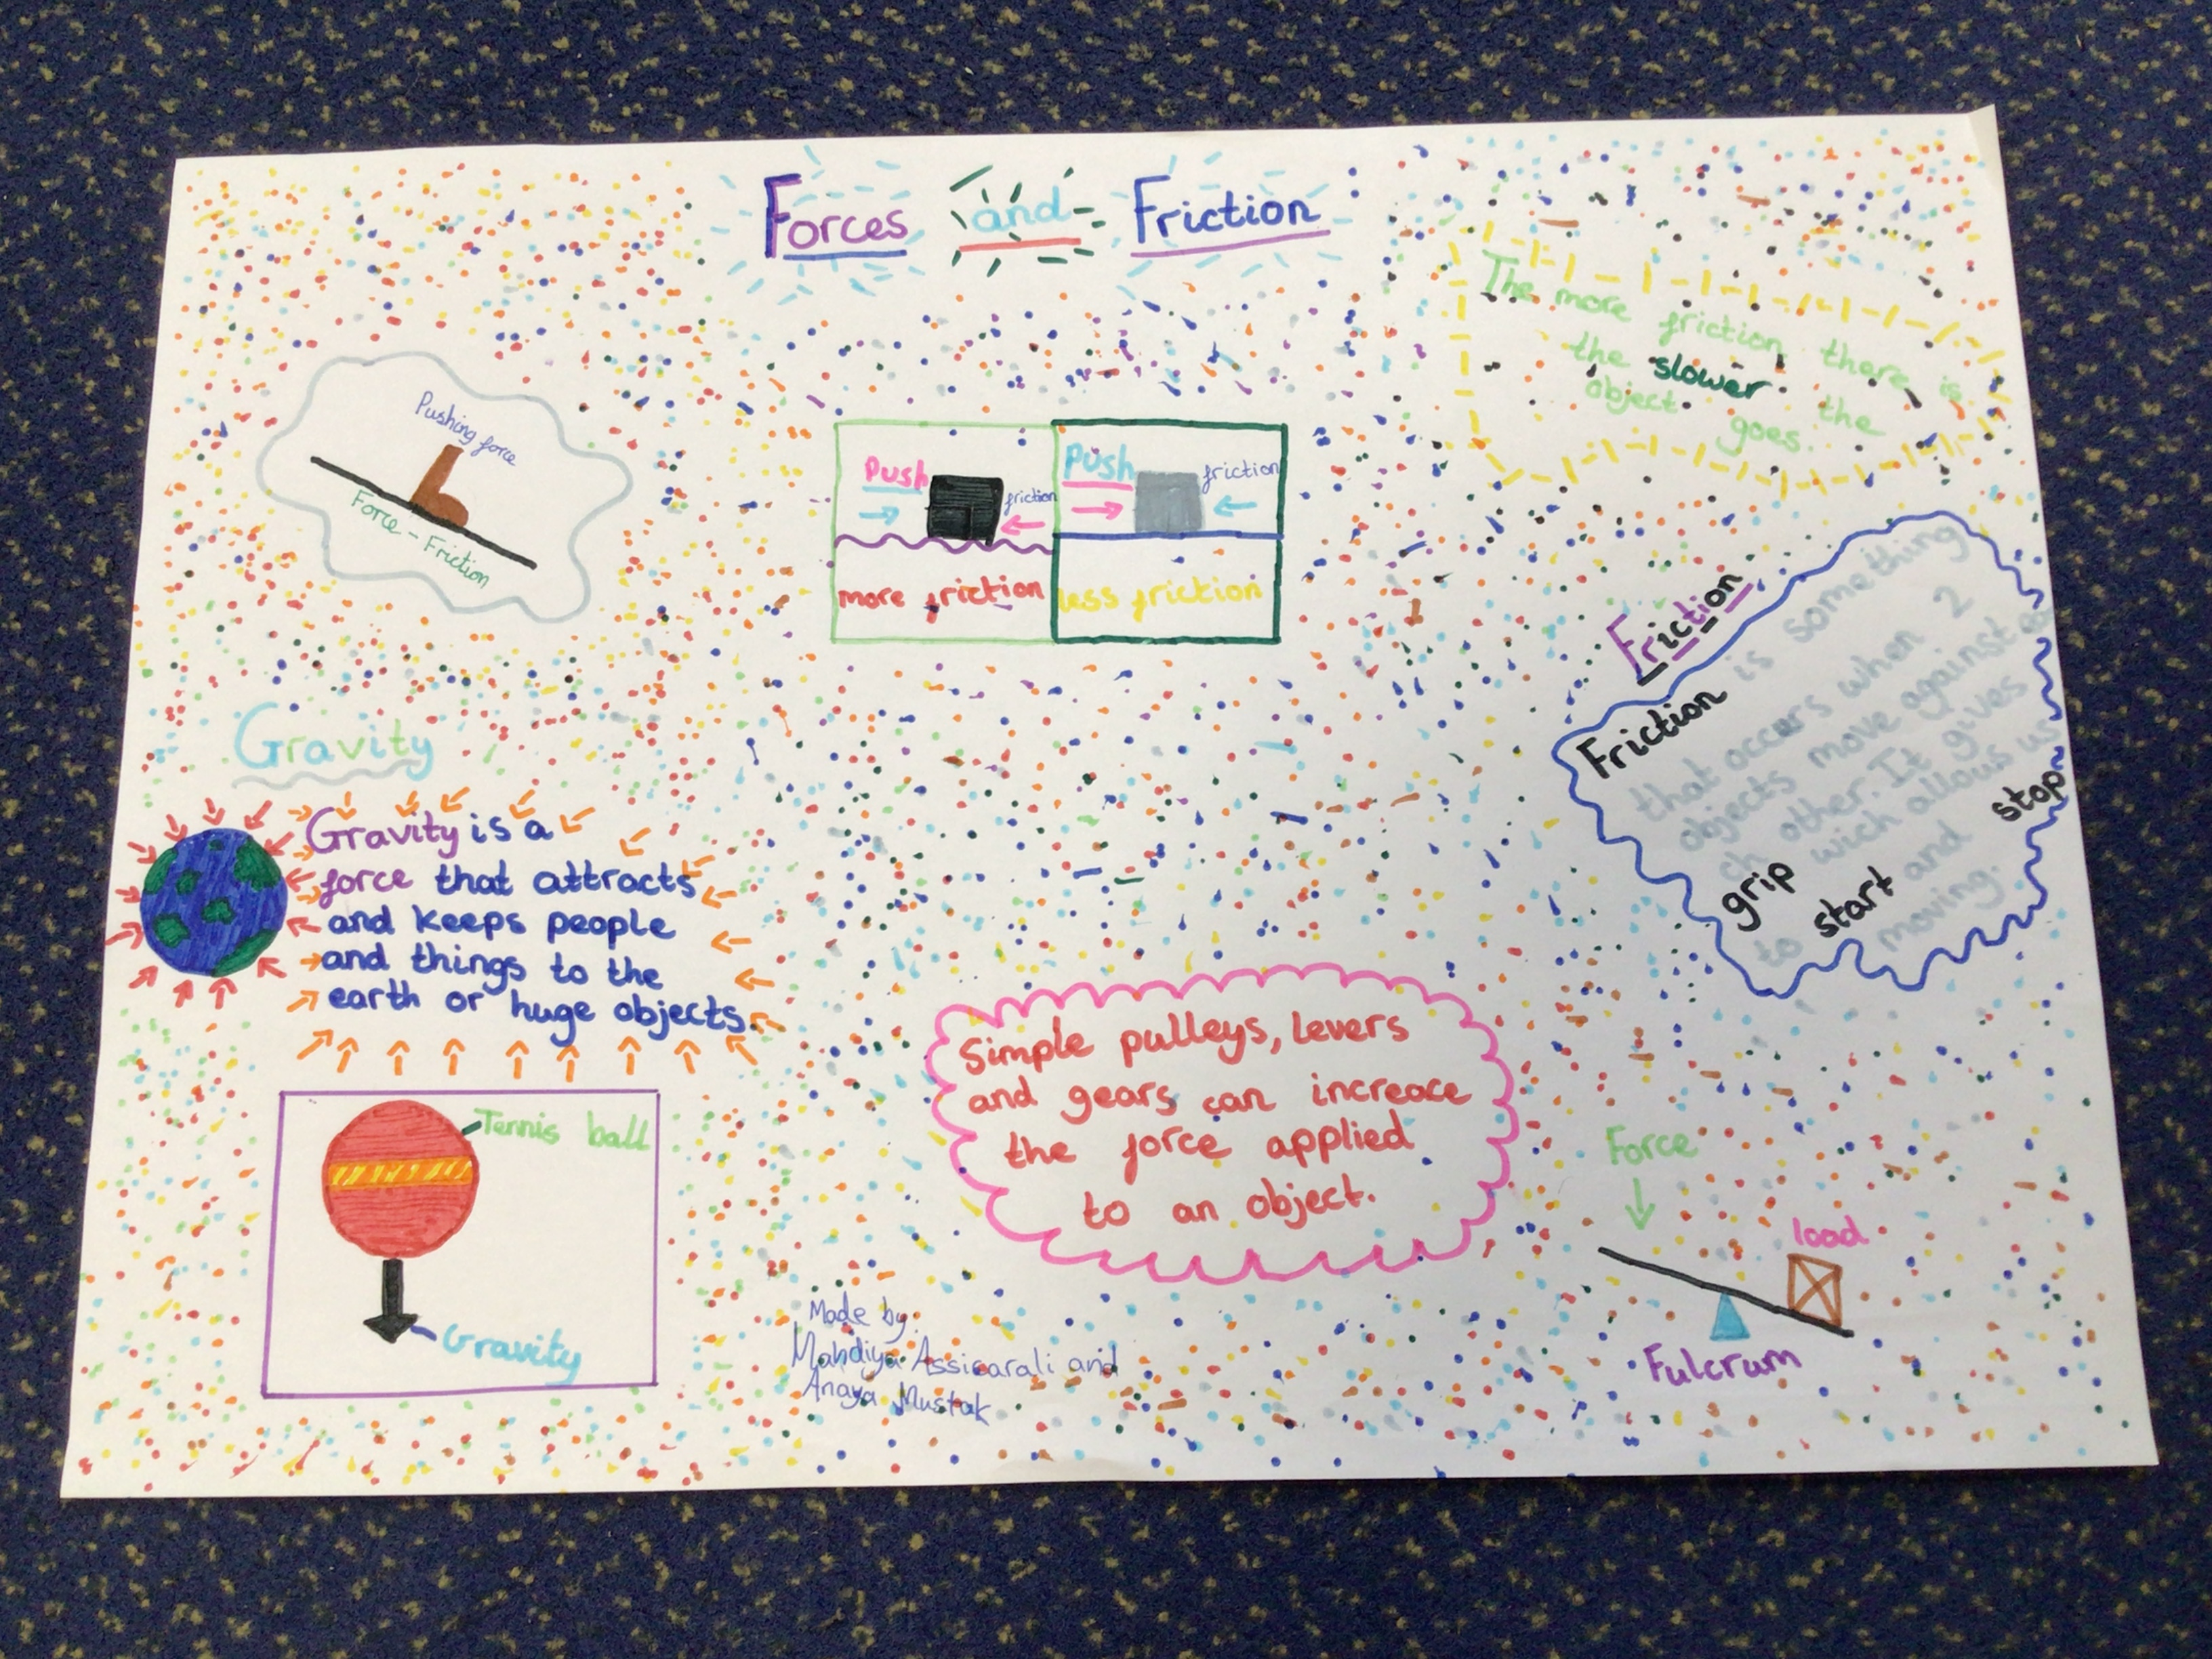 Forces and Friction
The more friction there is
the slower the
object goes.
Pushing force
Force - Friction
Push
friction
more friction
Push
friction
less friction
Friction
Friction is something
that occurs when 2
objects move against ea
ch other. It gives
grip wich allows us
to start and stop
moving.
Gravity
Gravity is a
force that attracts
and keeps people
and things to the
earth or huge objects.
Tennis ball
Gravity
Simple pulleys, levers
and gears can increace
the force applied
to an object.
Force
load
Fulcrum
Made by:
Mahdiya and
Anaya Mustak